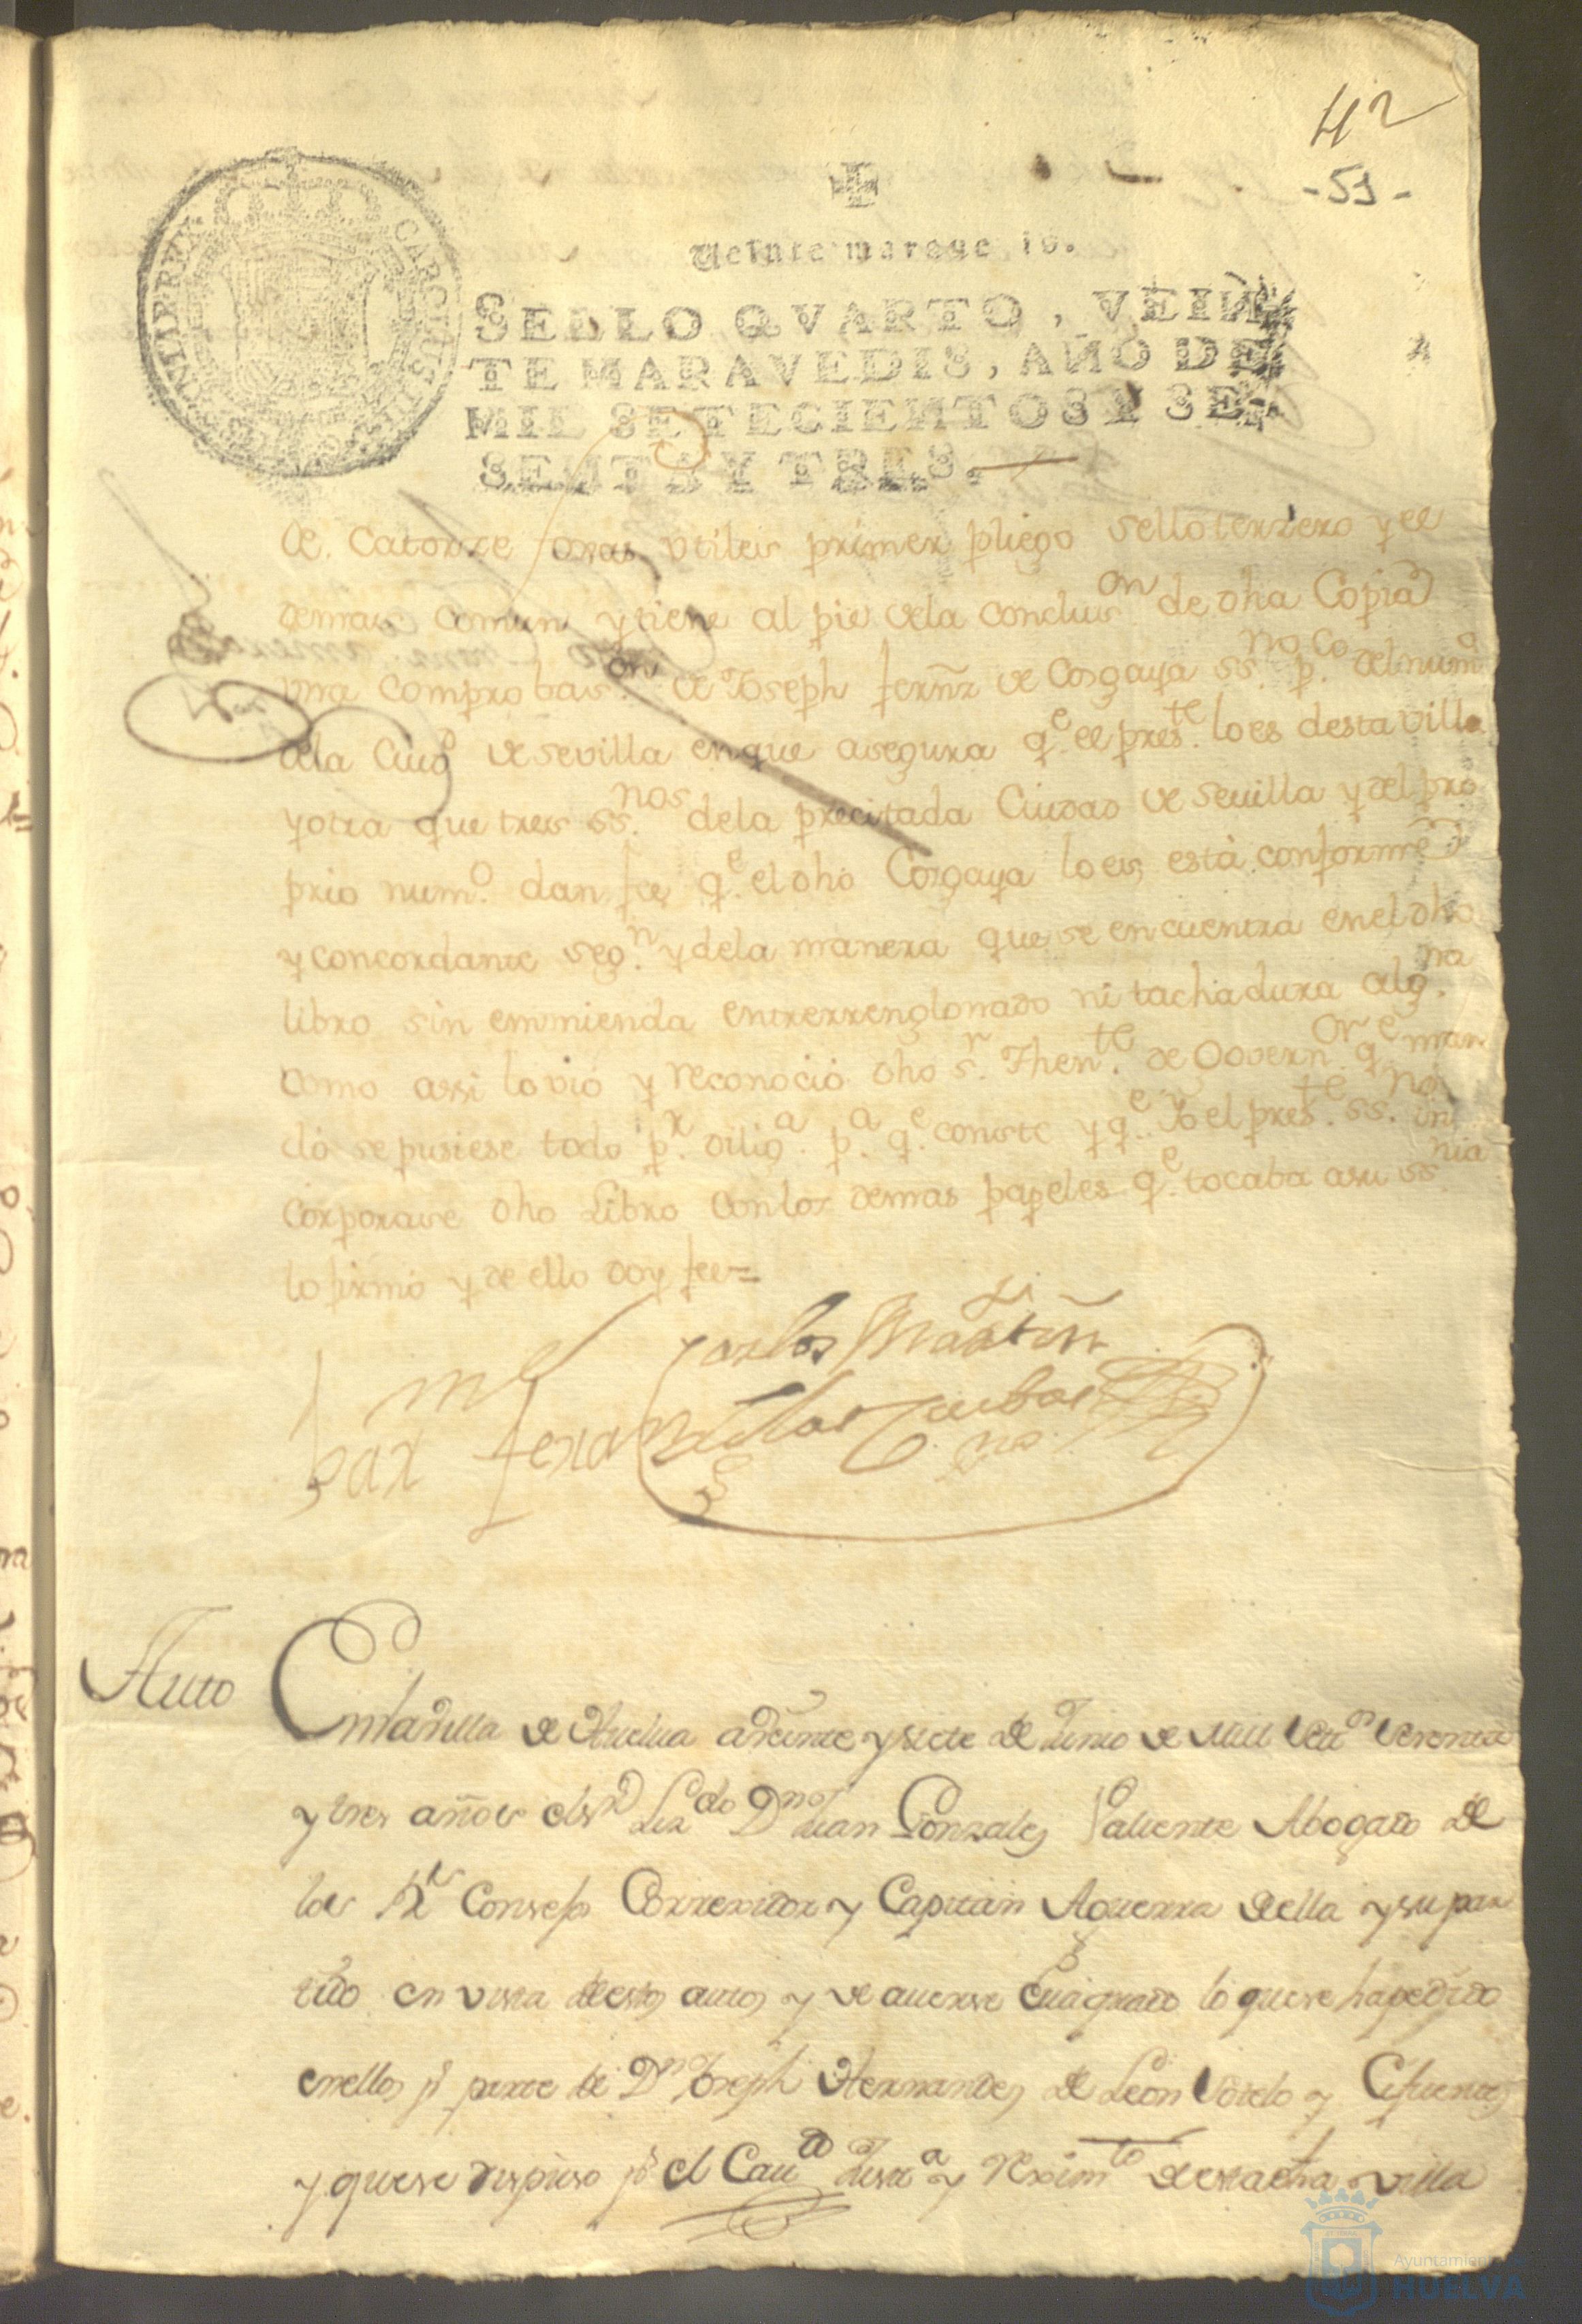 42
- 51 -
CAROLUS III HISPANIAR REX
Veinte maraue is.
SELLO QVARTO, VEIN
TE MARAVEDIS, AÑO DE
MIL SETECIENTOS Y SE
SENTA Y TRES.
de Catorze foxas vtiles primer pliego sello terzero y el
demas comun y tiene al pie de la conclus.on de dha Copia
vna comprobas.on de Joseph fernz de Cosgaya ss.no p.co del num.o
de la Ciud de Sevilla en que asegura q.e el pres.te lo es desta villa
y otra que tres ss.nos de la precitada Ciudad de Seuilla y del pro
prio num.o dan fee q.e el dho Cosgaya lo es, està conforme
y concordante seg.n y de la manera que se encuentra en el dho
libro sin enmienda entrerrenglonado ni tachadura alg.na
como assi lo vió y reconoció dho s.r Then.te de Governor q.e man
dó se pusiese todo p.r dilig.a p.a q.e conste y q.e Yo el pres.te ss.no in
corporase dho Libro con los demas papeles q.e tocaba a su ss.nia
lo firmó y de ello doy fee=
Carlos Martin
Auto
En la villa de Huelua a veinte y siete de Junio de mill setos sesenta
y tres años el sr Lizdo Dn Juan Gonzales Valiente Abogado de
los Rs Consejos Correxidor y Capitan Aguerra della y su par
tido en vista destos autos y de auerse euaquado lo que se ha pedido
en ellos pr parte de Dn Joseph Hernandes de Leon Sotelo y Cifuentes
y que se respuso pr el Cauo Justa y Reximto de esta dha villa
Ayuntamiento de
HUELVA